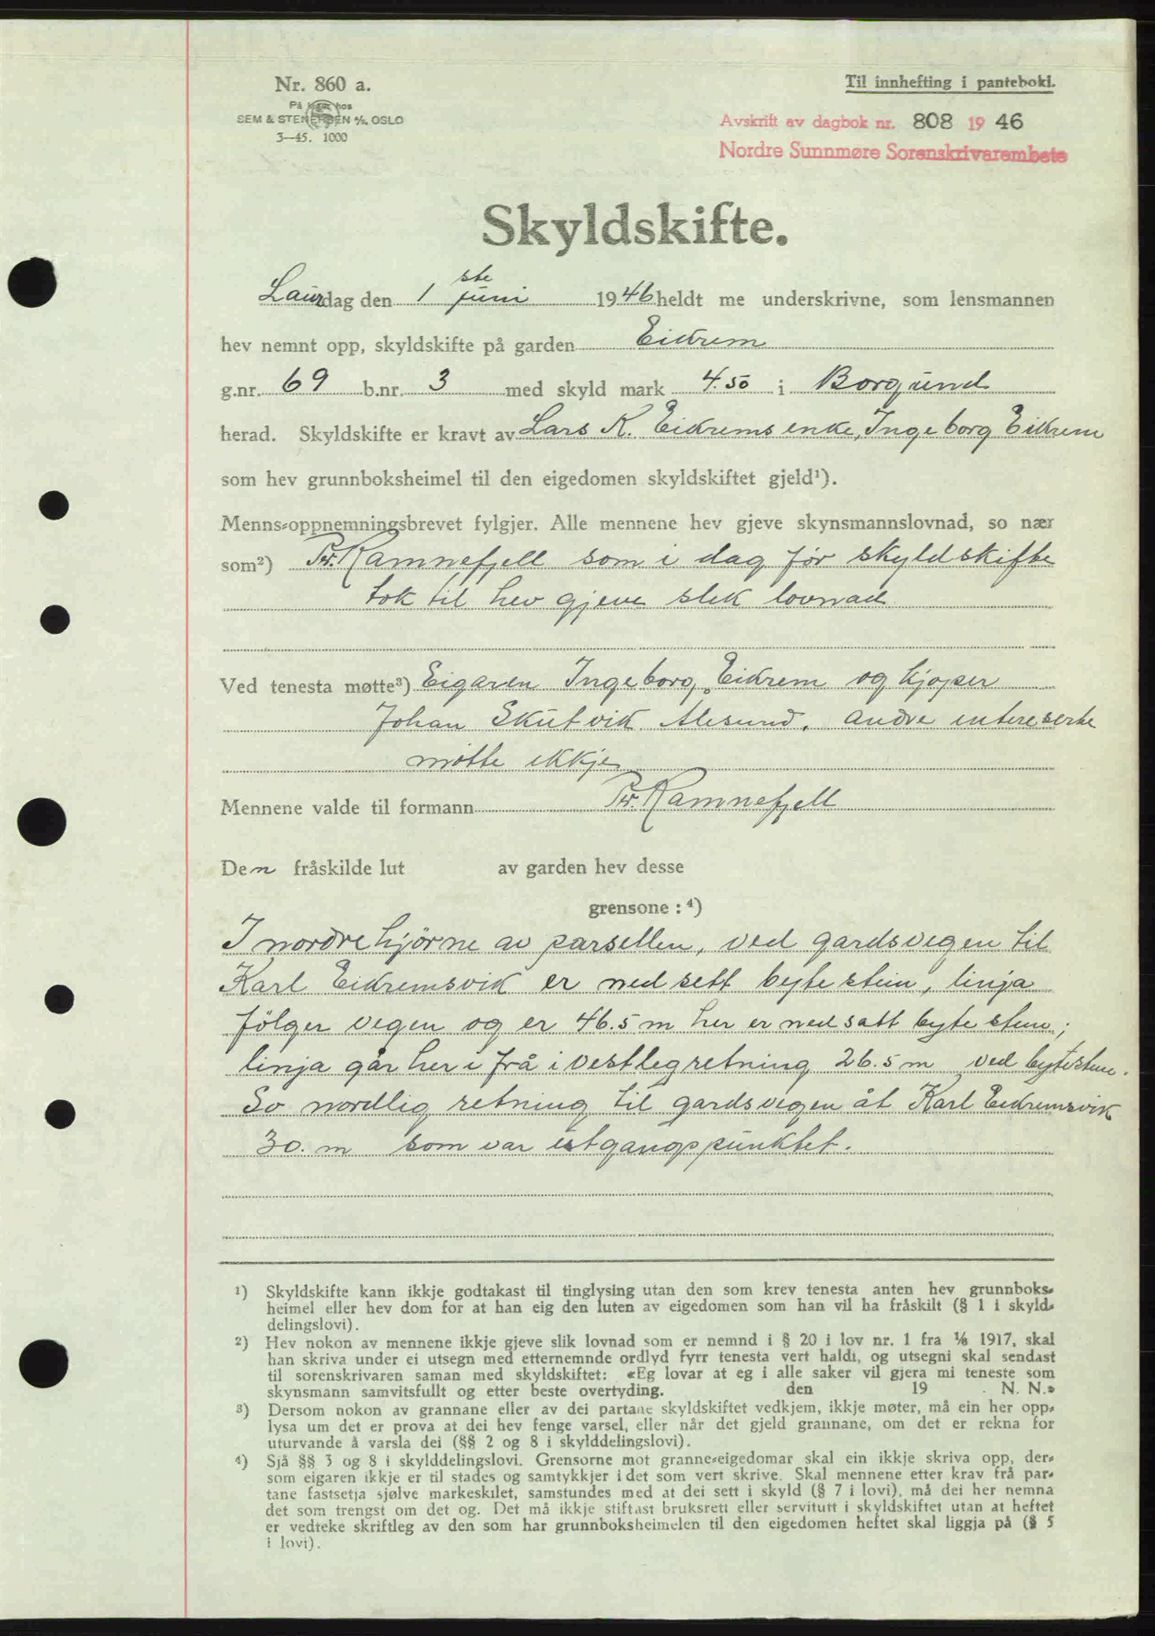 Nr. 860 a.
På lager hos
SEM & STENERSEN A/S, OSLO
3—45. 1000
Til innhefting i pantebok.
Avskrift av dagbok nr. 808 1946
Nordre Sunnmøre Sorenskrivarembete
Skyldskifte.
Laurdag den 1ste juni 1946 heldt me underskrivne, som lensmannen
hev nemnt opp, skyldskifte på garden Eikrem
g.nr. 69 b.nr. 3 med skyld mark 4.50 i Borgund
herad. Skyldskifte er kravt av Lars K. Eikrems enke, Ingeborg Eikrem
som hev grunnboksheimel til den eigedomen skyldskiftet gjeld¹).
Menns-oppnemningsbrevet fylgjer. Alle mennene hev gjeve skynsmannslovnad, so nær
som²) Per. Ramnefjell som i dag før skyldskifte
tok til hev gjeve slik lovnad
Ved tenesta møtte³) Eigaren Ingeborg Eikrem og kjøper
Johan Skutvik Ålesund. andre intereserte
møtte ikkje
Mennene valde til formann Per. Ramnefjell
Den fråskilde lut av garden hev desse
grensone : ⁴)
I nordre hjörne av parsellen, ved gardsvegen til
Karl Eikremsvik er nedsett bytestein, linja
følger vegen og er 46.5 m her er nedsatt bytestein;
linja går her i frå i vestleg retning 26.5 m ved bytestein.
So nordlig retning til gardsvegen åt Karl Eikremsvik
30. m som var utgangspunktet.
¹) Skyldskifte kann ikkje godtakast til tinglysing utan den som krev tenesta anten hev grunnboks-
heimel eller hev dom for at han eig den luten av eigedomen som han vil ha fråskilt (§ 1 i skyld-
delingslovi).
²) Hev nokon av mennene ikkje gjeve slik lovnad som er nemnd i § 20 i lov nr. 1 fra 1/6 1917, skal
han skriva under ei utsegn med etternemnde ordlyd fyrr tenesta vert haldi, og utsegni skal sendast
til sorenskrivaren saman med skyldskiftet: «Eg lovar at eg i alle saker vil gjera mi teneste som
skynsmann samvitsfullt og etter beste overtyding. den 19 . N. N.»
³) Dersom nokon av grannane eller av dei partane skyldskiftet vedkjem, ikkje møter, må ein her opp-
lysa um det er prova at dei hev fenge varsel, eller når det gjeld grannane, om det er rekna for
uturvande å varsla dei (§§ 2 og 8 i skylddelingslovi).
⁴) Sjå §§ 3 og 8 i skylddelingslovi. Grensorne mot granne-eigedomar skal ein ikkje skriva opp, der-
som eigaren ikkje er til stades og samtykkjer i det som vert skrive. Skal mennene etter krav frå par-
tane fastsetja sjølve markeskilet, samstundes med at dei sett i skyld (§ 7 i lovi), må dei her nemna
det som trengst om det og. Det må ikkje stiftast bruksrett eller servitutt i skyldskiftet utan at heftet
er vedteke skriftleg av den som har grunnboksheimelen til den eigedomen heftet skal liggja på (§ 5
i lovi).